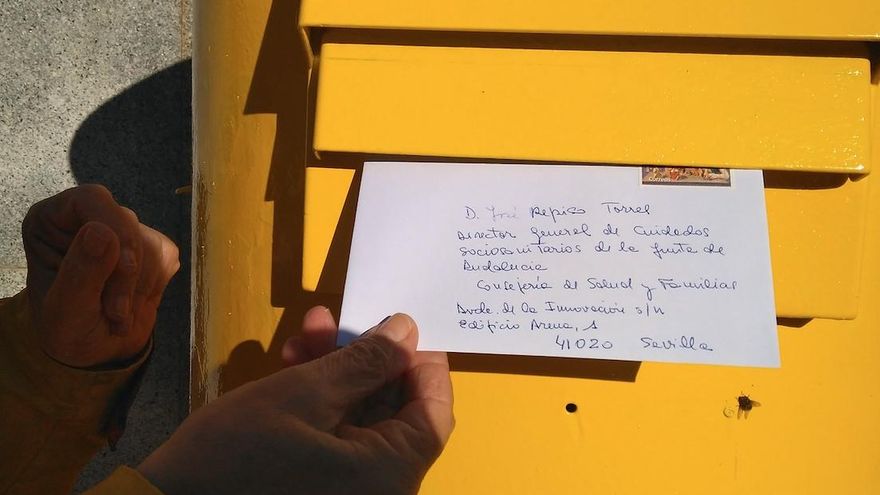 Correos
D. José Repiso Torres
Director general de Cuidados
sociosanitarios de la Junta de
Andalucia
Consejería de Salud y Familias
Avde. de la Innovación s/n
Edificio Arena, 1
41020 Sevilla